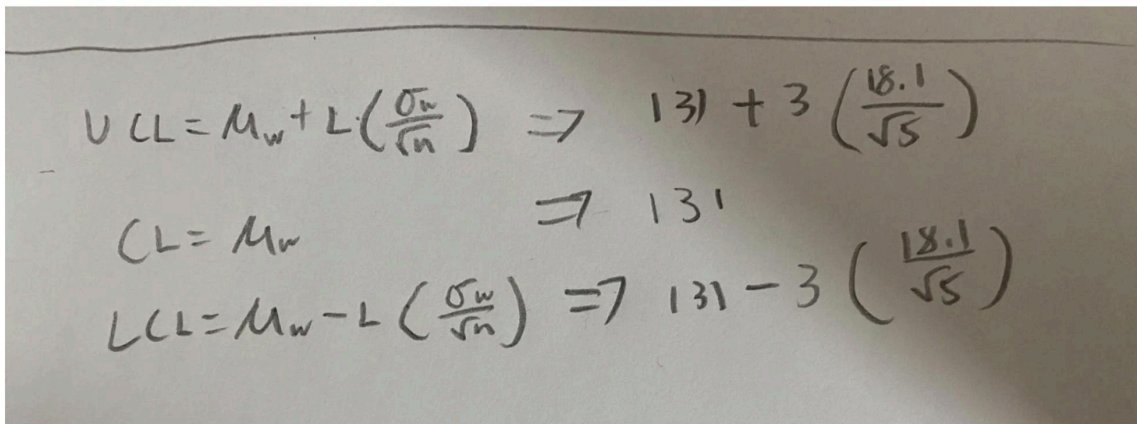 UCL = μw + L(σw/√n) ⇒ 131 + 3(18.1/√5)
CL = μw ⇒ 131
LCL = μw - L(σw/√n) ⇒ 131 - 3(18.1/√5)